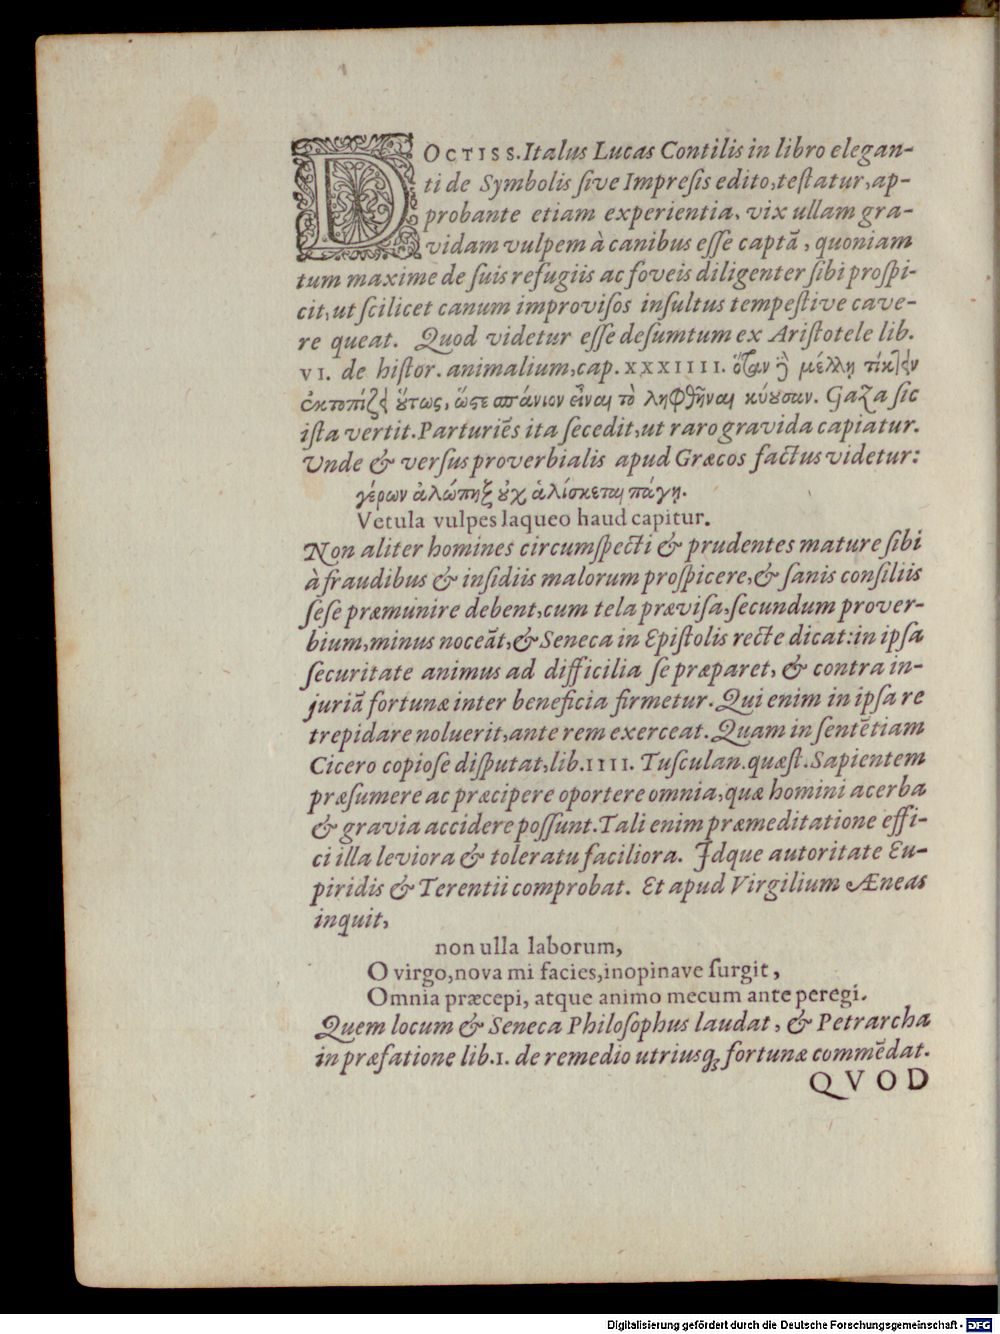 DOCTISS. Italus Lucas Contilis in libro elegan-
ti de Symbolis sive Impresis edito, testatur, ap-
probante etiam experientia, vix ullam gra-
vidam vulpem à canibus esse captā, quoniam
tum maxime de suis refugiis ac foveis diligenter sibi prospi-
cit, ut scilicet canum improvisos insultus tempestive cave-
re queat. Quod videtur esse desumtum ex Aristotele lib.
VI. de histor. animalium, cap. XXXIIII. ὅταν ἢ μέλλη τίκτην
ἐκτοπίζει οὕτως, ὥστε σπάνιον εἶναι τὸ ληφθῆναι κύουσαν. Gaza sic
ista vertit. Parturiēs ita secedit, ut raro gravida capiatur.
Unde & versus proverbialis apud Græcos factus videtur:
γέρων ἀλώπηξ οὐχ ἁλίσκεται πάγῃ.
Vetula vulpes laqueo haud capitur.
Non aliter homines circumspecti & prudentes mature sibi
à fraudibus & insidiis malorum prospicere, & sanis consiliis
sese præmunire debent, cum tela prævisa, secundum prover-
bium, minus noceāt, & Seneca in Epistolis recte dicat: in ipsa
securitate animus ad difficilia se præparet, & contra in-
juriā fortunæ inter beneficia firmetur. Qui enim in ipsa re
trepidare noluerit, ante rem exerceat. Quam in sentētiam
Cicero copiose disputat, lib. IIII. Tusculan. quæst. Sapientem
præsumere ac præcipere oportere omnia, quæ homini acerba
& gravia accidere possunt. Tali enim præmeditatione effi-
ci illa leviora & toleratu faciliora. Idque autoritate Eu-
piridis & Terentii comprobat. Et apud Virgilium Æneas
inquit,
non ulla laborum,
O virgo, nova mi facies, inopinave surgit,
Omnia præcepi, atque animo mecum ante peregi.
Quem locum & Seneca Philosophus laudat, & Petrarcha
in præfatione lib. I. de remedio utriusq; fortunæ commēdat.
QVOD
Digitalisierung gefördert durch die Deutsche Forschungsgemeinschaft - DFG